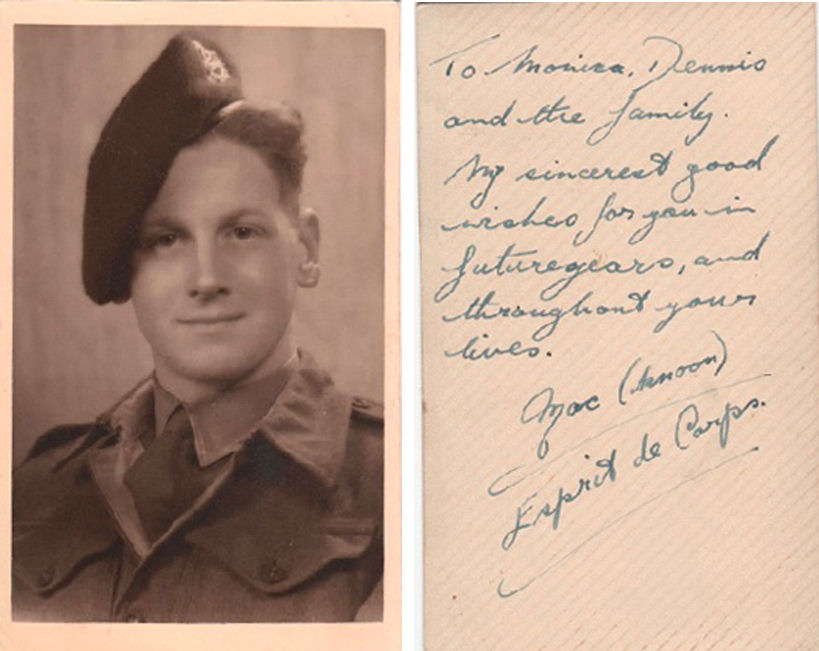 To Monica, Dennis
and the family.
My sincerest good
wishes for you in
future years, and
throughout your
lives.
Mac
Esprit de Corps.